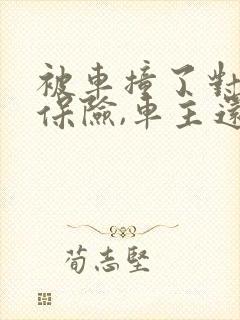 被車撞了對
保險,車主還
荀志堅